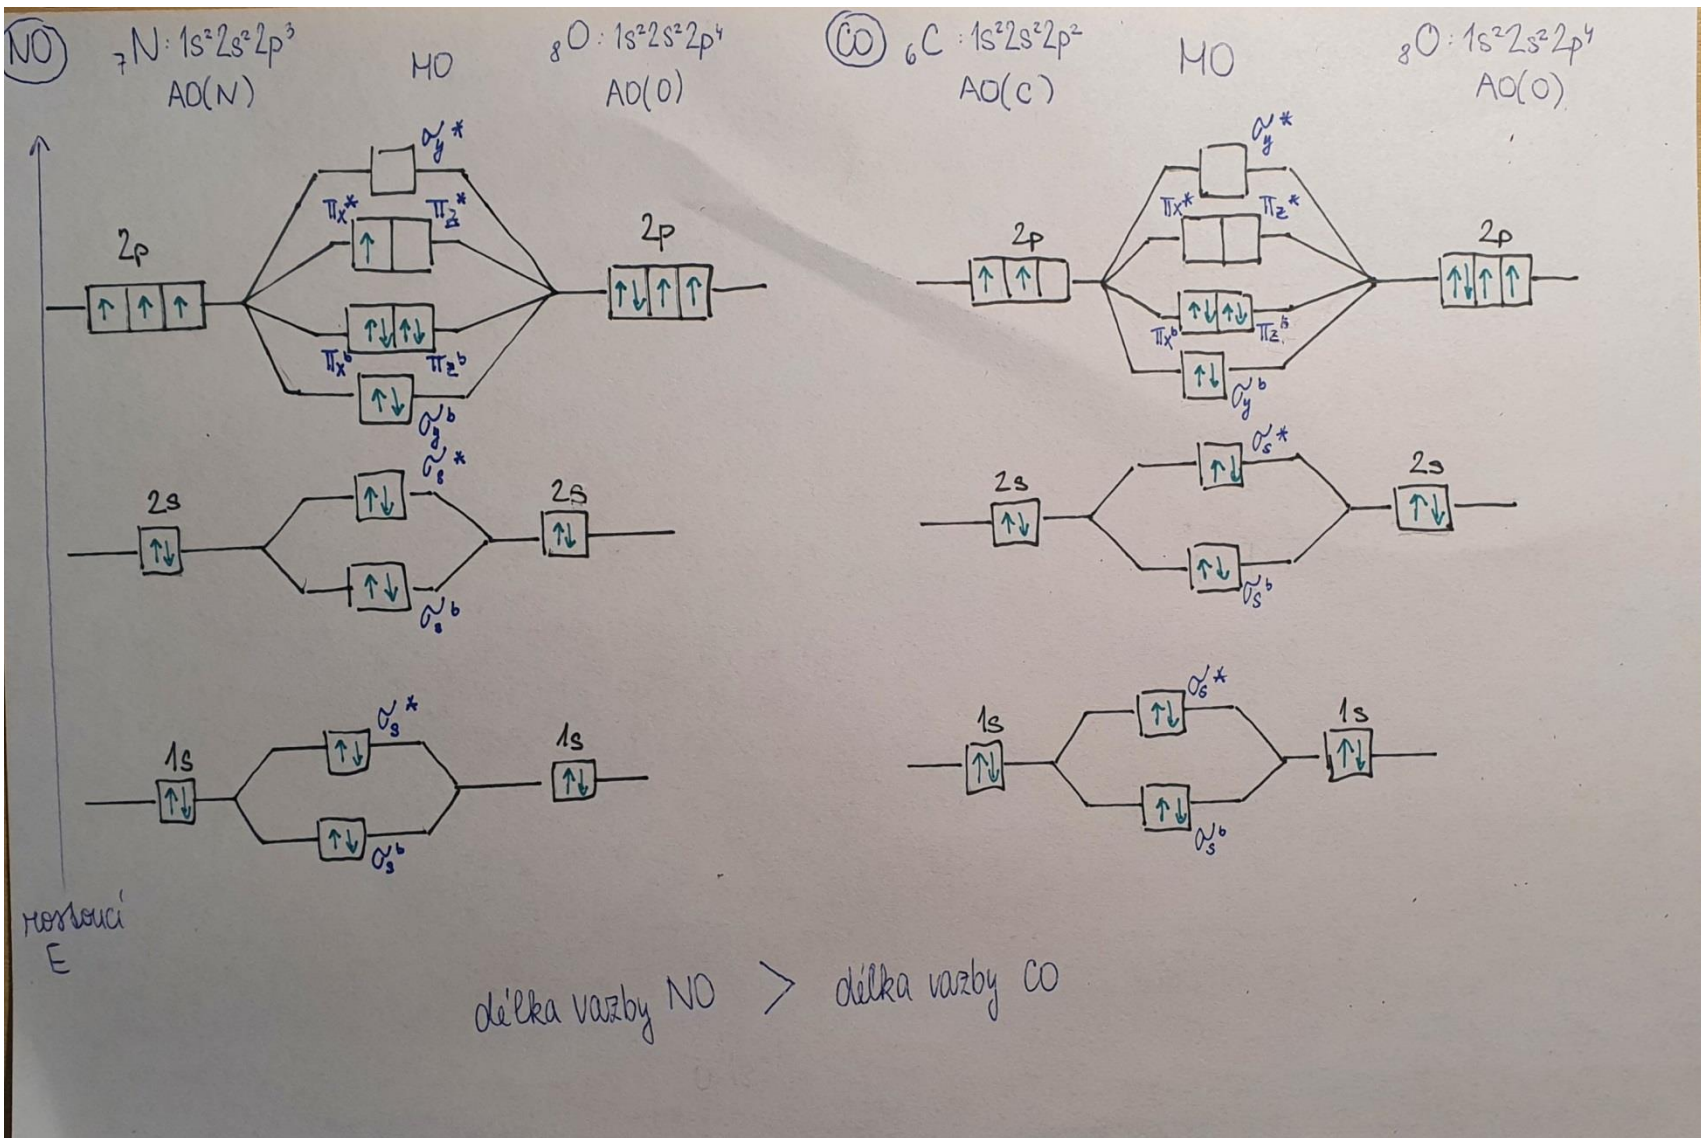 NO ₇N: 1s² 2s² 2p³ MO ₈O: 1s² 2s² 2p⁴
AO(N) AO(O)
σy*
πx* πz*
2p 2p
↑ ↑ ↑ ↑ ↑↓ ↑ ↑
↑↓ ↑↓
πxᵇ πzᵇ
↑↓
σyᵇ
σs*
2s ↑↓ 2s
↑↓ ↑↓
↑↓
σsᵇ
σs*
1s ↑↓ 1s
↑↓ ↑↓
↑↓
σsᵇ
rostoucí
E
CO ₆C: 1s² 2s² 2p² MO ₈O: 1s² 2s² 2p⁴
AO(C) AO(O)
σy*
πx* πz*
2p 2p
↑ ↑ ↑↓ ↑ ↑
↑↓ ↑↓
πxᵇ πzᵇ
↑↓
σyᵇ
σs*
2s ↑↓ 2s
↑↓ ↑↓
↑↓
σsᵇ
σs*
1s ↑↓ 1s
↑↓ ↑↓
↑↓
σsᵇ
délka vazby NO > délka vazby CO